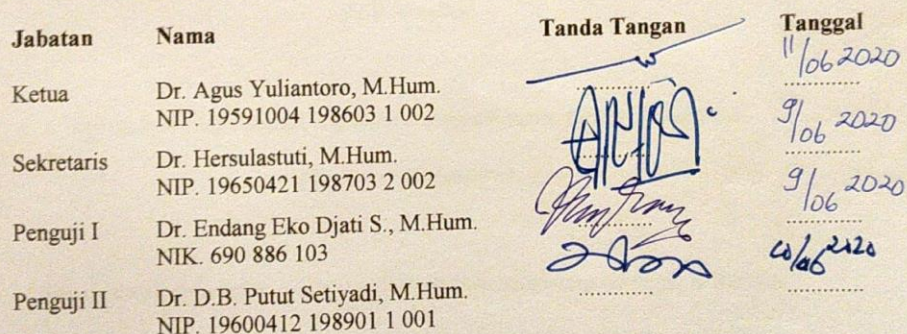 Jabatan Nama Tanda Tangan Tanggal
11/06 2020
Ketua Dr. Agus Yuliantoro, M.Hum. ..............
NIP. 19591004 198603 1 002 9/06 2020
Sekretaris Dr. Hersulastuti, M.Hum. ..............
NIP. 19650421 198703 2 002 9/06 2020
Penguji I Dr. Endang Eko Djati S., M.Hum. ..............
NIK. 690 886 103 /06 2020
Penguji II Dr. D.B. Putut Setiyadi, M.Hum. .............. ..............
NIP. 19600412 198901 1 001